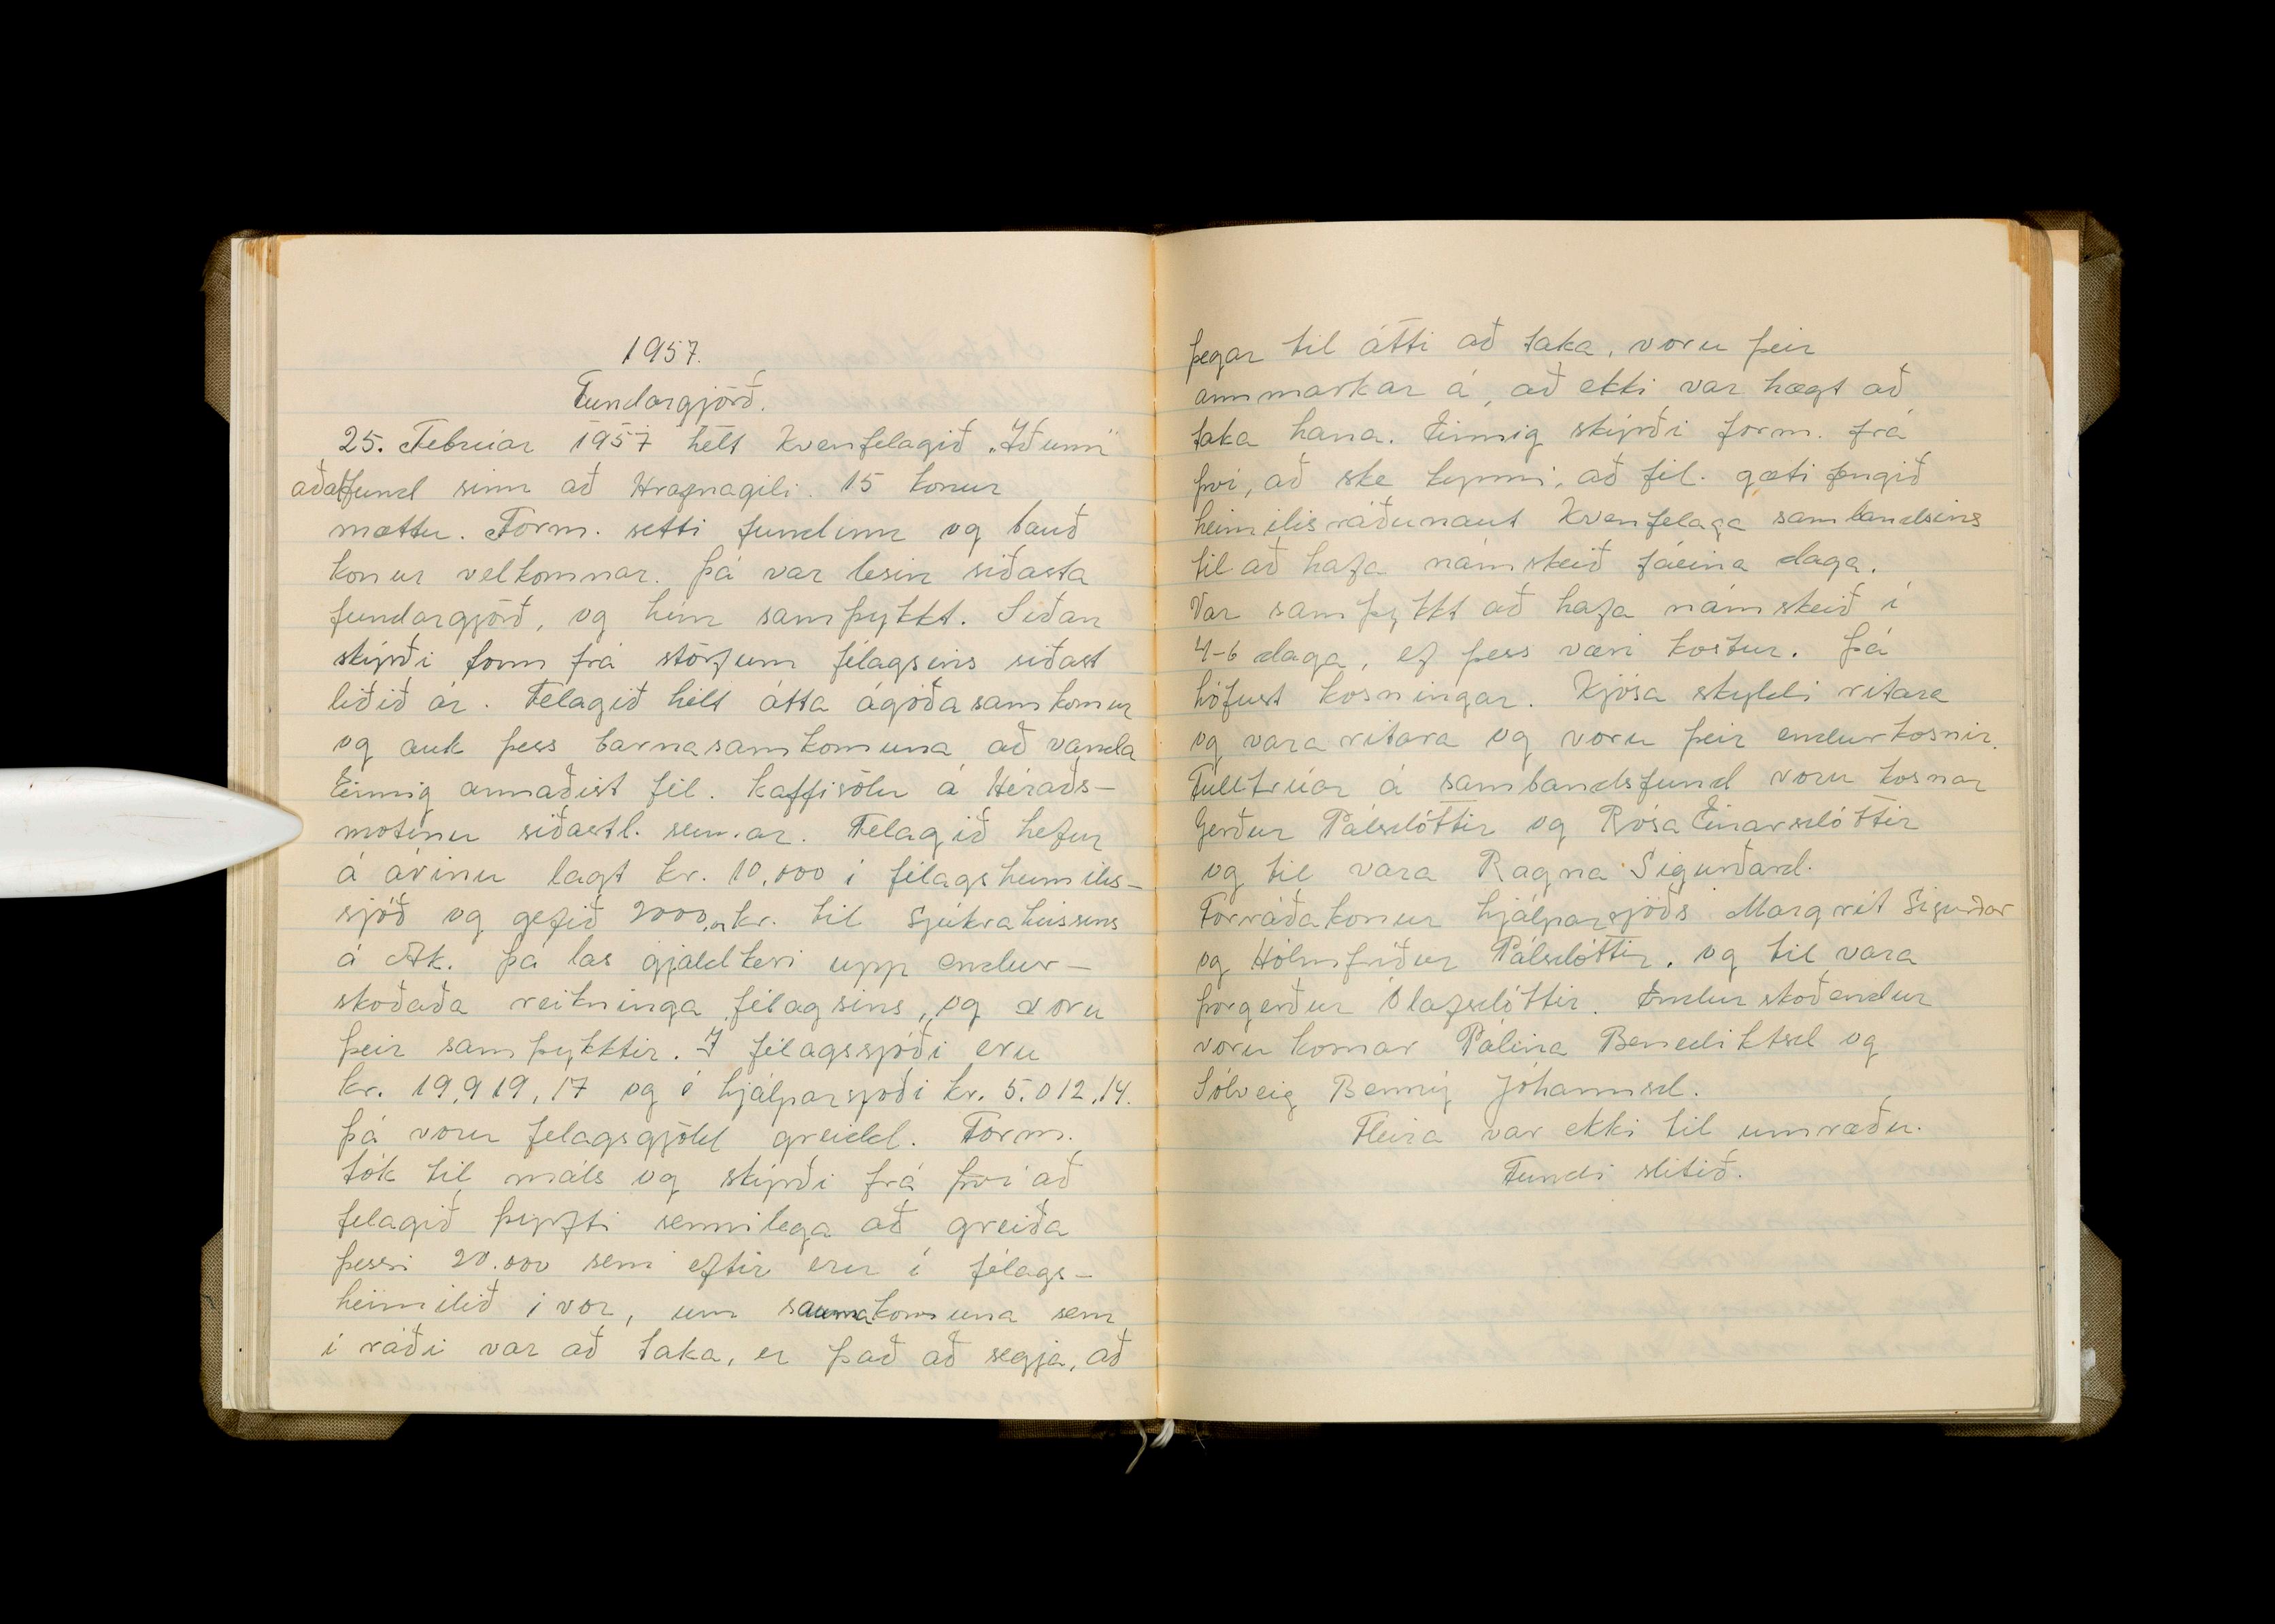 1957.
Fundargjörð.
25. Februar 1957 hélt Kvenfelagið „Iðunn"
aðalfund sinn að Hrafnagili. 15 konur
mættu. Form. setti fundinn og bauð
konur velkomnar. Þá var lesin siðasta
fundargjörð, og hún samþykkt. Siðan
skýrði form frá störfum félagsins siðast
liðið ár. Félagið hélt átta ágóðasamkomur
og auk þess barnasamkomuna að vanda
Einnig annaðist fél. kaffisölu á Héraðs-
mótinu siðastl. sumar. Félagið hefur
á árinu lagt kr. 10.000 i félagsheimilis-
sjóð og gefið 2000,- kr. til Sjúkrahússins
á Ak. Þá las gjaldkeri upp endur-
skoðaða reikninga félagsins, og voru
þeir samþykktir. I félagssjóði eru
kr. 19.919,17 og i hjálparsjóði kr. 5.012,14.
Þá voru felagsgjöld greidd. Form.
tók til máls og skýrði frá þvi að
felagið þyrfti sennilega að greiða
þessi 20.000 sem eftir eru i félags-
heimilið i vor, um saumakonuna sem
i ráði var að taka, er það að segja, að
þegar til átti að taka, voru þeir
annmarkar á, að ekki var hægt að
taka hana. Einnig skýrði form. frá
þvi, að ske kynni, að fél. gæti fengið
heimilisráðunaut Kvenfelaga sambandsins
til að hafa námskeið fáeina daga.
Var samþykkt að hafa námskeið i
4-6 daga, ef þess væri kostur. Þá
hófust kosningar. Kjósa skyldi ritara
og vara ritara og voru þeir endurkosnir.
Fulltrúar á sambandsfund voru kosnar
Gerður Pálsdóttir og Rósa Einarsdóttir
og til vara Ragna Sigurðard.
Forráðakonur hjálparsjóðs Margrét Sigurðar
og Hólmfríður Pálsdóttir. og til vara
Þorgerður Ólafsdóttir. Endurskoðendur
voru kosnar Pálina Benediktsd og
Sólveig Benný Jóhannsd.
Fleira var ekki til umræðu.
Fundi slitið.